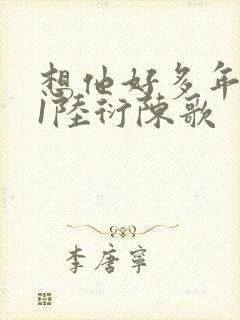 想他好多年
1陸衍陳歌
李唐寧